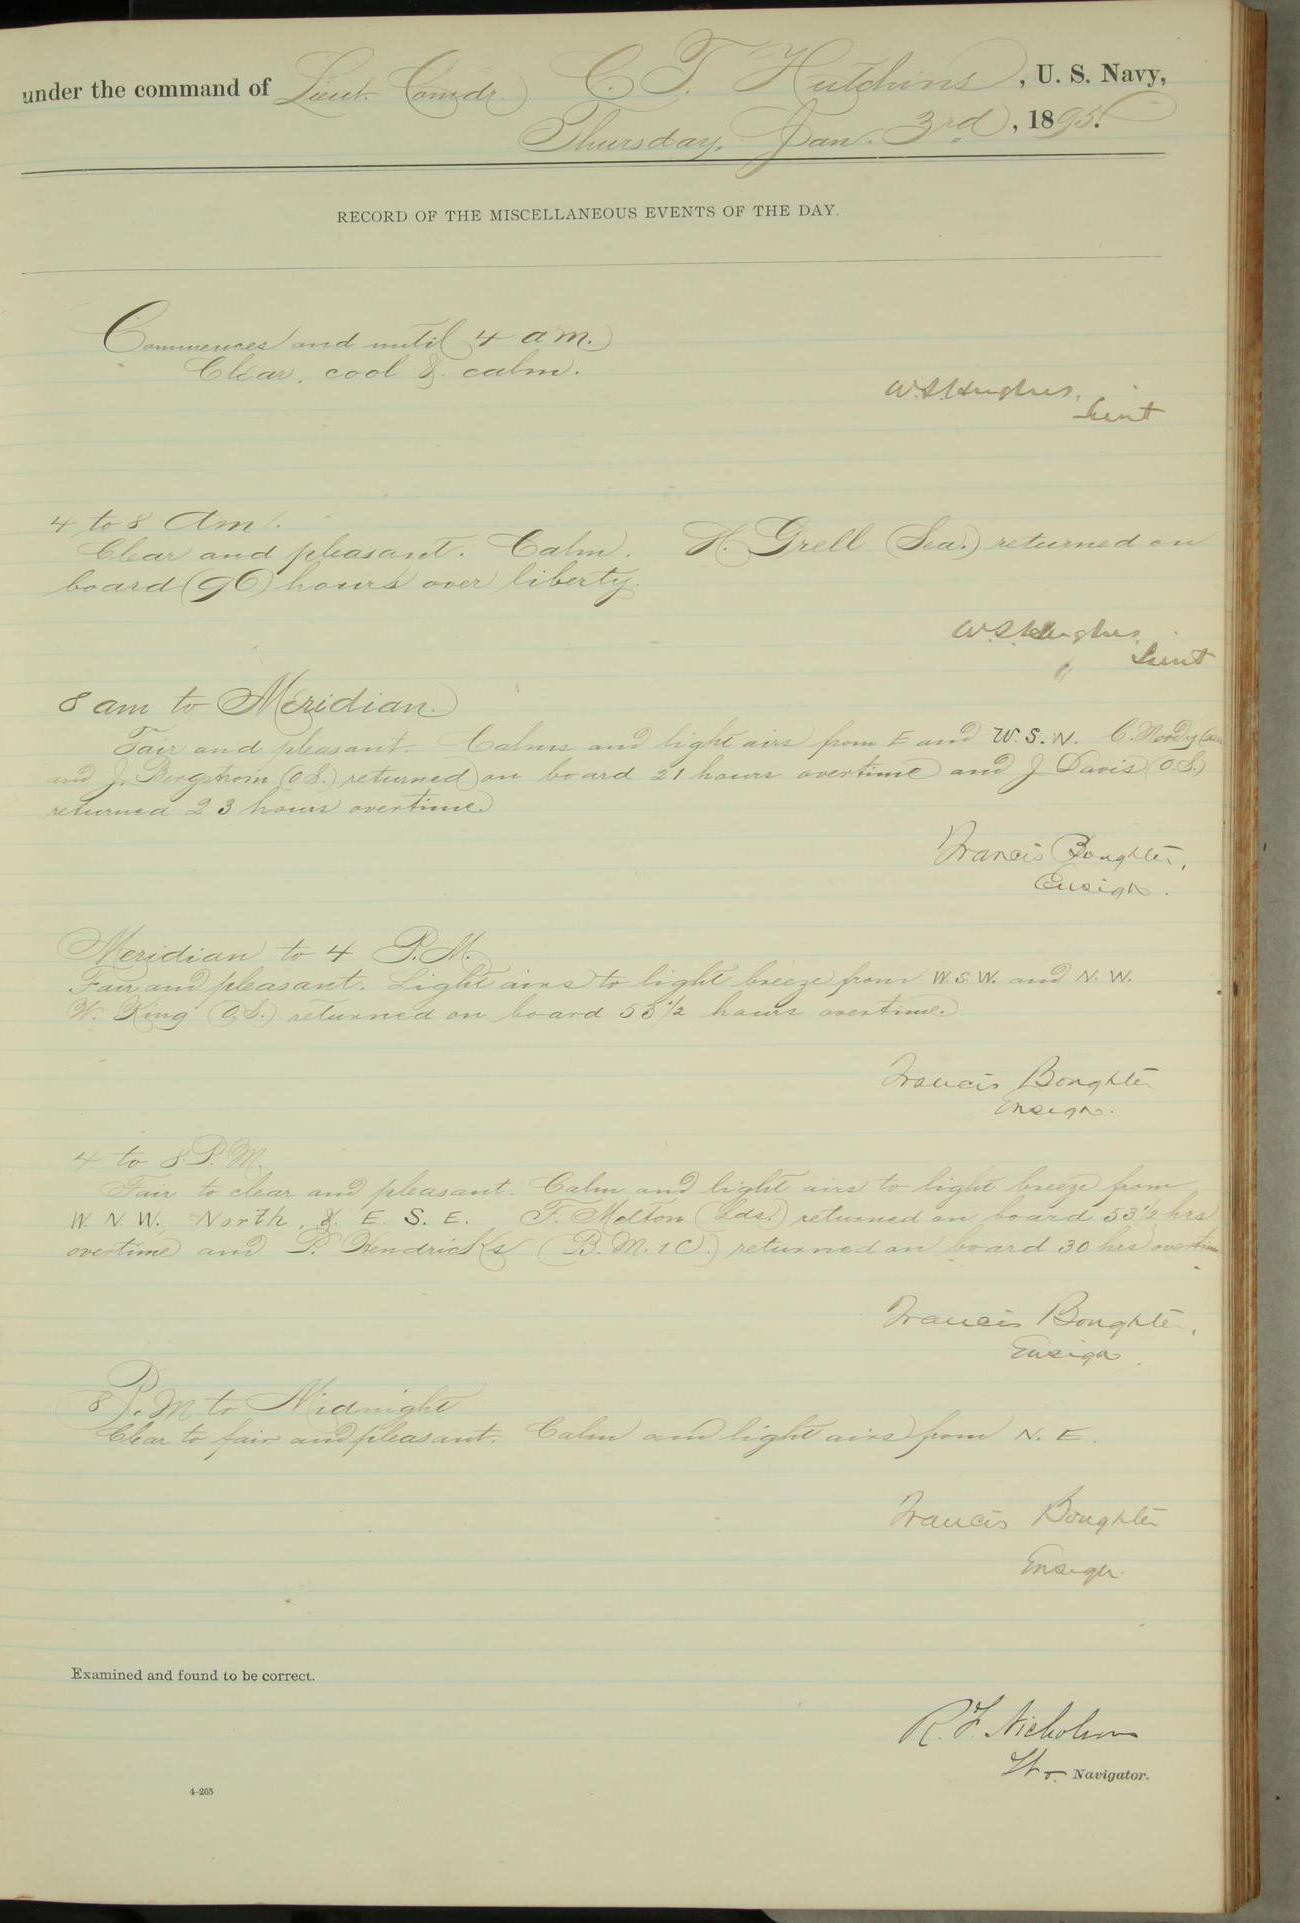 under the command of Lieut. Comdr. C. T. Hutchins, U. S. Navy,
Thursday, Jan. 3rd, 1895.
RECORD OF THE MISCELLANEOUS EVENTS OF THE DAY.
Commences and until 4 a m.
Clear, cool & calm.
W.S. Hughes,
Lieut
4 to 8 Am.
Clear and pleasant. Calm. H. Grell (Sea.) returned on
board (96) hours over liberty.
W.S. Hughes,
Lieut
8 am to Meridian.
Fair and pleasant. Calms and light airs from E and W. S. W. C. Moody
and J. Bergstrom (O.S.) returned on board 21 hours overtime and J Davis (O.S.)
returned 23 hours overtime.
Francis Boughter,
Ensign.
Meridian to 4 P.M.
Fair and pleasant. Light airs to light breeze from W.S.W. and N.W.
W. King (O.S.) returned on board 53 1/2 hours overtime.
Francis Boughter
Ensign.
4 to 8 P.M.
Fair to clear and pleasant. Calm and light airs to light breeze from
W. N. W. North, & E. S. E. F. Melton (Lds.) returned on board 53 1/2 hrs
overtime and P. Hendricks (B.M. 1 C.) returned on board 30 hrs overtime
Francis Boughter,
Ensign
8 P.M to Midnight
Clear to fair and pleasant. Calm and light airs from N. E.
Francis Boughter
Ensign.
Examined and found to be correct.
R. F. Nicholson
Navigator.
4-265